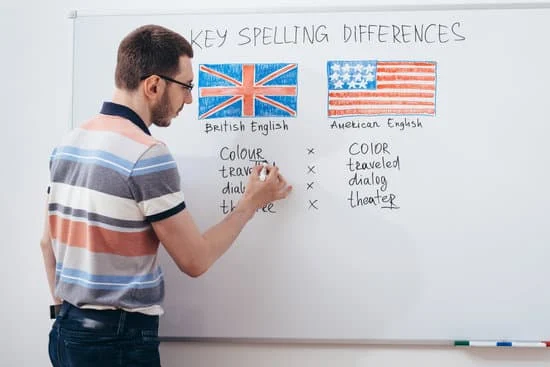 KEY SPELLING DIFFERENCES
British English American English
COlOUR × COlOR
× traveled
× dialog
× theateR